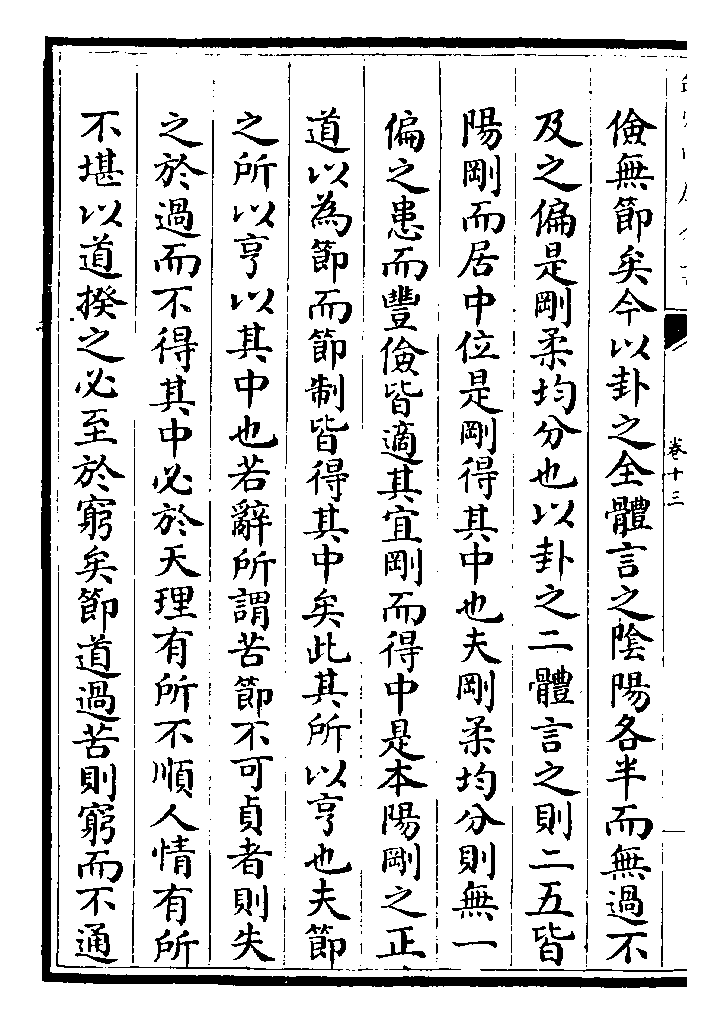 卷十三
儉無節矣今以卦之全體言之陰陽各半而無過不
及之偏是剛柔均分也以卦之二體言之則二五皆
陽剛而居中位是剛得其中也夫剛柔均分則無一
偏之患而豐儉皆適其宜剛而得中是本陽剛之正
道以為節而節制皆得其中矣此其所以亨也夫節
之所以亨以其中也若辭所謂苦節不可貞者則失
之於過而不得其中必於天理有所不順人情有所
不堪以道揆之必至於窮矣節道過苦則窮而不通